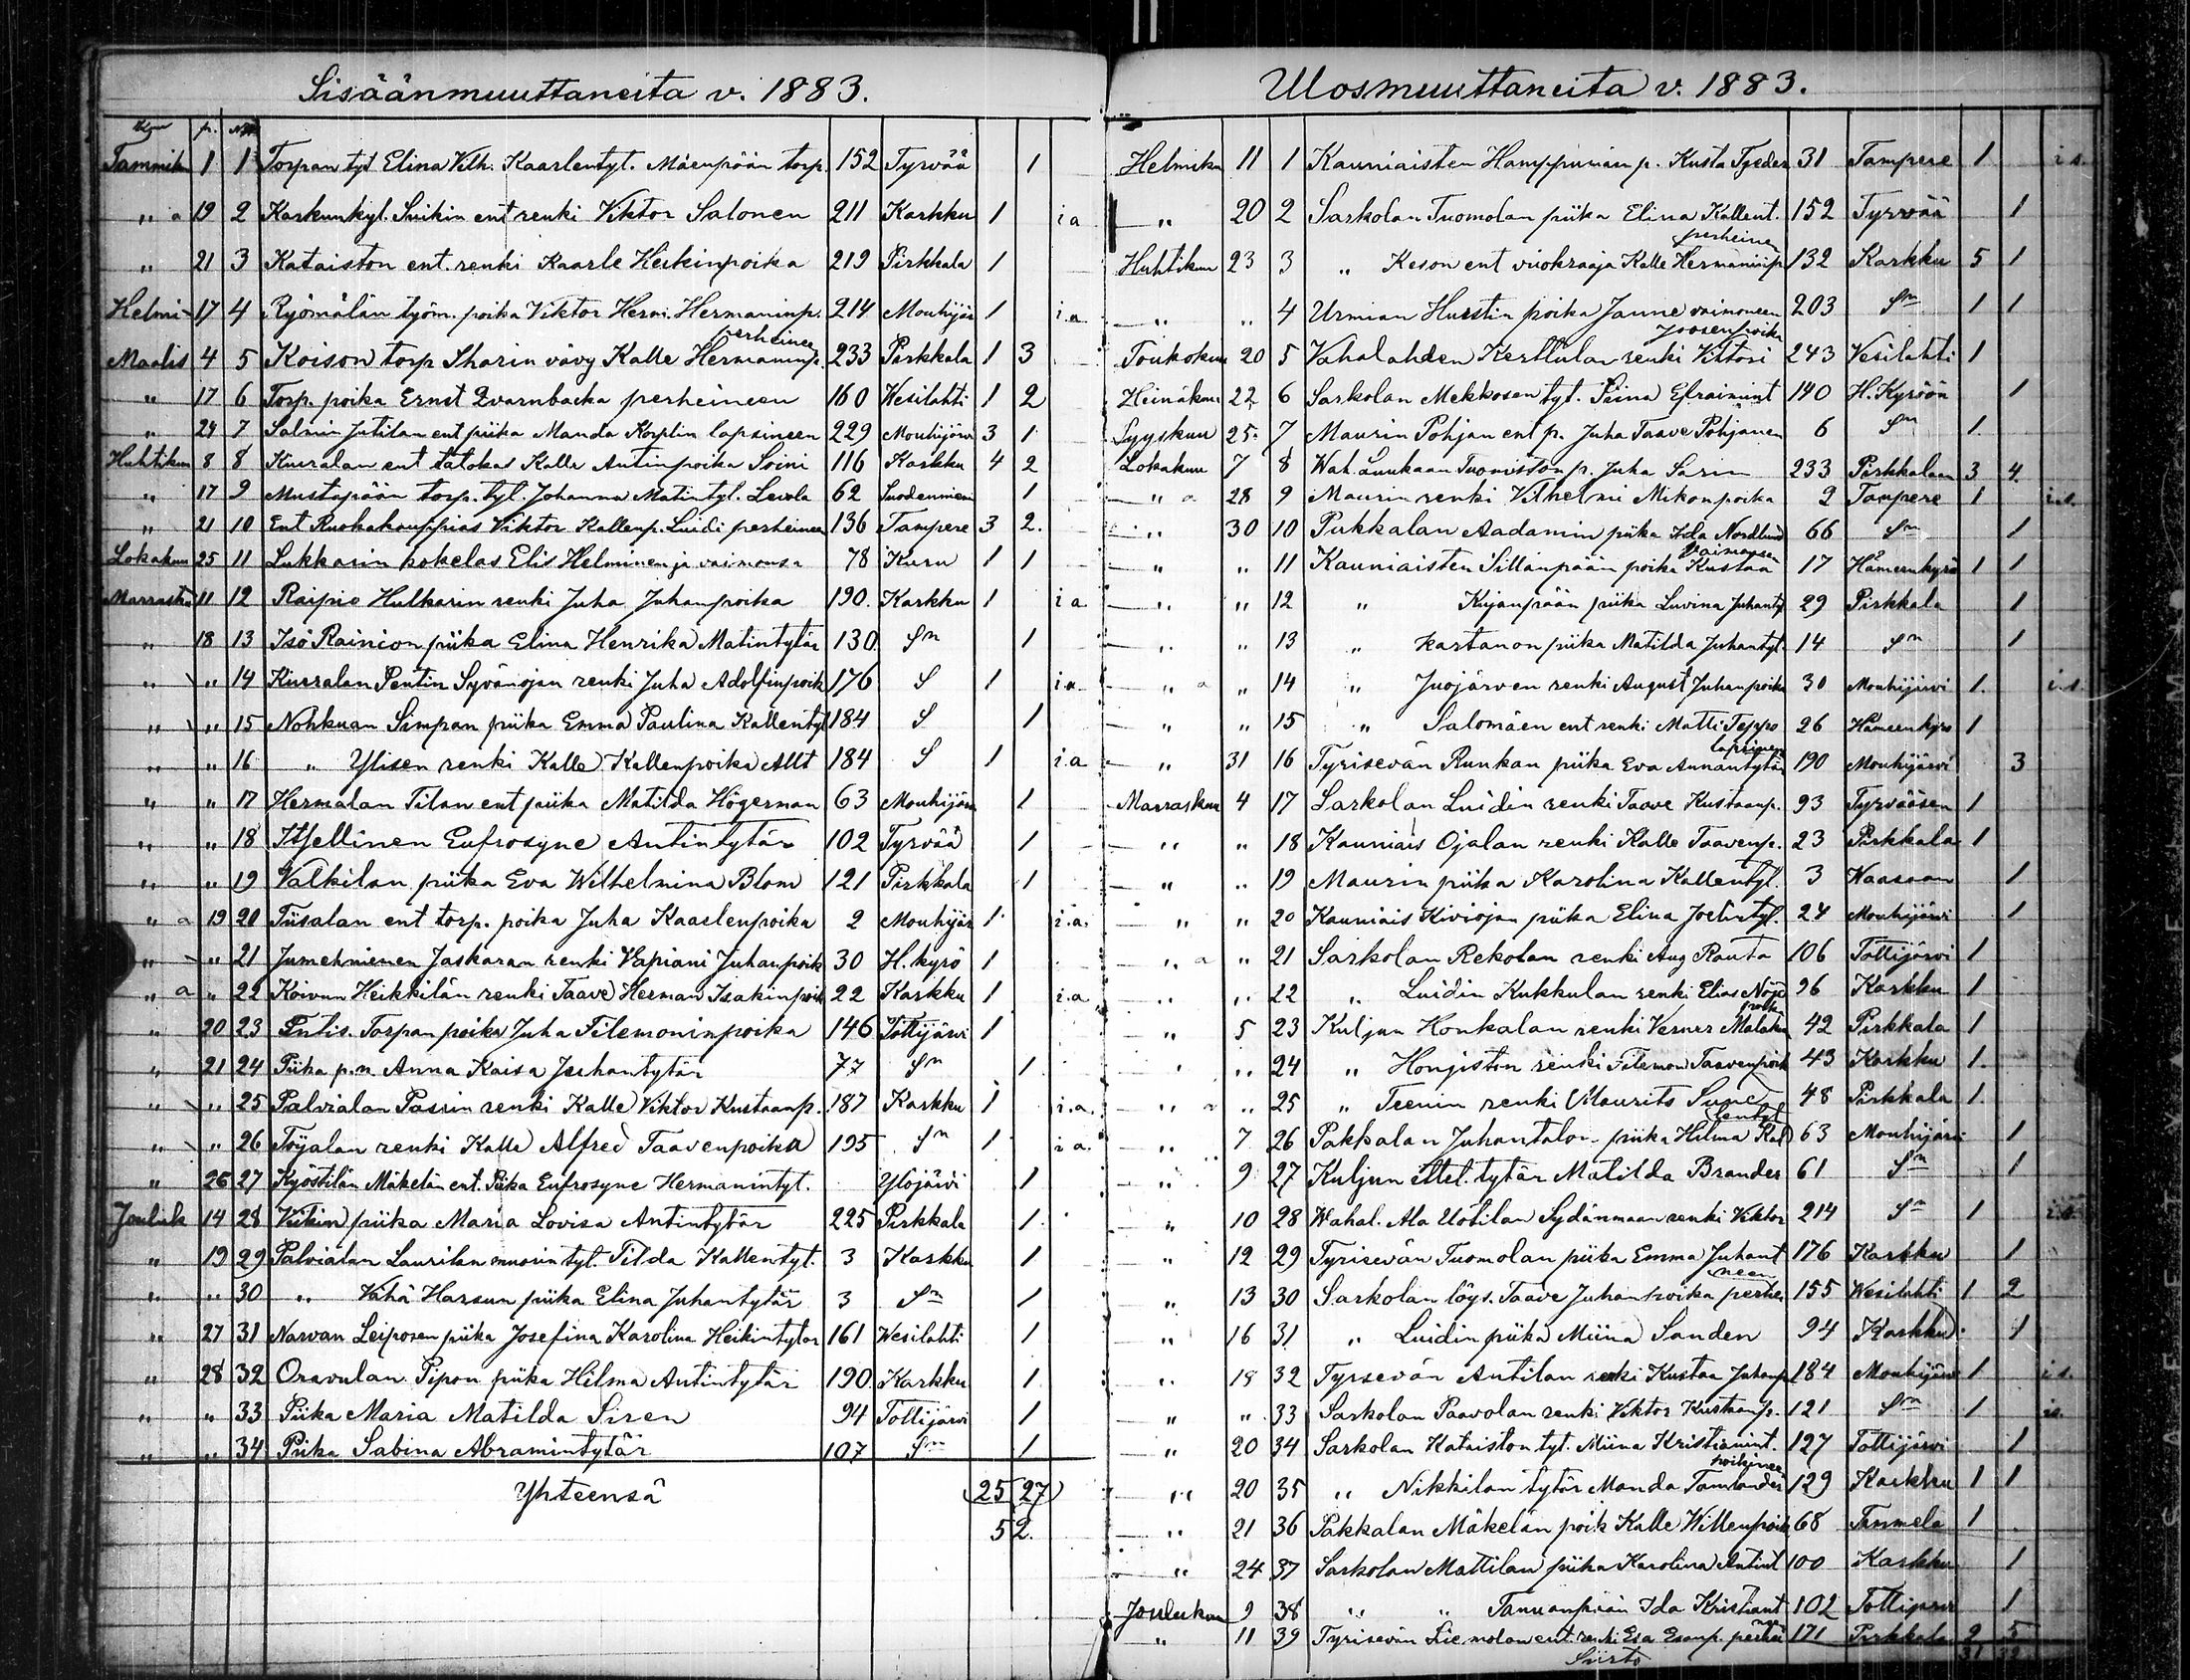 Sisäänmuuttaneita v. 1883.
Tammik 1 1 Torpan tyt Elina Vilh. Kaarlentyt. Mäenpään torp. 152 Tyrvää 1
" a 19 2 Karkunkyl. Suikin ent renki Viktor Salonen 211 Karkku 1 i a
" 21 3 Kataiston ent. renki Kaarle Heikinpoika 219 Pirkkala 1
Helmi- 17 4 Ryömälän työm. poika Viktor Herm. Hermaninp. 214 Mouhijär 1 i.a
Maalis 4 5 Koison torp Sharin vävy Kalle Hermaninp. perheineen 233 Pirkkala 1 3
" 17 6 Torp. poika Ernst Qvarnbacka perheineen 160 Wesilahti 1 2
" 24 7 Salmin Jutilan ent piika Manda Korplin lapsineen 229 Mouhijärvi 3 1
Huhtikuu 8 8 Kuralan ent Kalle Antinpoika Soini 116 Karkku 4 2
" 17 9 Mustapään torp. tyt. Johanna Matintyt. Levola 62 Suodennien 1
" 21 10 Ent Ruokakauppias Viktor Kallenp. Luidi perheineen 136 Tampere 3 2.
Lokakuu 25 11 Lukkarin kokelas Elis Helminen ja vaimonsa 78 Kuru 1 1
Marrasku 11 12 Raipio Hulkarin renki Juha Juhanpoika 190 Karkku 1 i a.
" 18 13 Iso Rainion piika Elina Henrika Matintytär 130 Sn 1
" " 14 Kuralan Pentin Syvänojan renki Juha Adolfinpoik 176 S 1 i a
" " 15 Nohkuan Simpan piika Emma Paulina Kallentyt 184 S 1
" " 16 " Ylisen renki Kalle Kallenpoika Allt 184 S 1 i.a
" " 17 Hermalan Tilan ent piika Matilda Högerman 63 Mouhijärv 1
" " 18 Itsellinen Eufrosyne Antintytär 102 Tyrvää 1
" " 19 Valkilan piika Eva Wilhelmina Blom 121 Pirkkala 1
" a 19 20 Tiisalan ent torp. poika Juha Kaarlenpoika 2 Mouhijär 1 i.a.
" " 21 Jumehnienen Jaskaran renki Vapiani Juhanpoik 30 H. kyrö 1
" a " 22 Koivun Heikkilän renki Taave Herman Isakinpoik 22 Karkku 1 i.a
" 20 23 Entis. Torpan poika Juha Filemoninpoika 146 Tottijärvi 1
" 21 24 Piika p.n. Anna Kaisa Juhantytär 77 Sn 1
" " 25 Palvialan Passin renki Kalle Viktor Kustaanp. 187 Karkku 1 i.a.
" " 26 Töyjalan renki Kalle Alfred Taavenpoika 195 Sn 1 i a.
" 26 27 Kyöstilän Mäkelän ent. Piika Eufrosyne Hermanintyt. Ylöjärvi 1
Jouluk 14 28 Viikin piika Maria Lovisa Antintytär 225 Pirkkala 1
" 19 29 Palvialan Laurilan muorin tyt. Tilda Kallentyt. 3 Karkku 1
" " 30 " Vähä Harsun piika Elina Juhantytär 3 Sn 1
" 27 31 Narvan Leiposen piika Josefina Karolina Heikintytär 161 Wesilahti 1
" 28 32 Oravulan Pipon piika Hilma Antintytär 190 Karkku 1
" " 33 Piika Maria Matilda Siren 94 Tottijärvi 1
" " 34 Piika Sabina Abramintytär 107 Sn 1
Yhteensä 25 27
52.
Ulosmuuttaneita v. 1883.
Helmiku 11 1 Kauniaisten p. Kusta 31 Tampere 1 i s.
" 20 2 Sarkolan Tuomolan piika Elina Kallent. 152 Tyrvää 1
Huhtikuu 23 3 " Keson ent vuokraaja Kalle Hermaninp perheinen 132 Karkku 5 1
" " 4 Urmian Hurstin poika Janne vaimoneen 203 Sn 1 1
Toukokuu 20 5 Vahalahden Kerttulan renki Viktori Joosenpoika 243 Vesilahti 1
Heinäkuu 22 6 Sarkolan Mekkosen tyt. Efraimint 140 H. Kyröön 1
Syyskuu 25 7 Maurin Pohjan ent p. Juha Taave Pohjanen 6 Sn 1.
Lokakuu 7 8 Wah. Luukaan p. Juha Sarin 233 Pirkkalaan 3 4.
" a 28 9 Maurin renki Vilhelmi Mikonpoika 2 Tampere 1 i.s.
" 30 10 Pukkalan Aadamin piika Ida Nordlund 66 Sn 1
" " 11 Kauniaisten Sillanpään poika Kustaa vaimonsa 17 Hämeenkyrö 1 1
" " 12 " Kujanpään piika Luvina Juhanty 29 Pirkkala 1
" " 13 " Kartanon piika Matilda Juhantyt. 14 Sn 1
" a " 14 " Juojärven renki August Juhanpoika 30 Mouhijärvi 1. i.s
" " 15 " Salomäen ent renki Matti Teppo 26 Hämeenkyrö 1
" 31 16 Tyrisevän Runkan piika Eva Annantytär lapsineen 190 Mouhijärvi 3
Marraskuu 4 17 Sarkolan Luidin renki Taave Kustaanp. 93 Tyrvääsen 1
" " 18 Kauniais Ojalan renki Kalle Taavenp. 23 Pirkkala 1
" " 19 Maurin piika Karolina Kallentyt. 3 Waasaan 1
" " 20 Kauniais Kiviojan piika Elina Joelintyt. 24 Mouhijärvi 1
" a " 21 Sarkolan Rekolan renki Aug Rauta 106 Tottijärvi 1
" " 22 " Luidin Kukkulan renki Elias Nöjd 96 Karkku 1
" 5 23 Kuljun Honkalan renki Verner Malakin poika 42 Pirkkala 1
" " 24 " Hongiston renki Filemon Taavenpoik 43 Karkku 1.
" a " 25 " Teenin renki Maurits Sune 48 Pirkkala 1.
" 7 26 Pakkalan Juhantalon piika Hilma Kallentyt 63 Mouhijärvi 1
" 9 27 Kuljun ettel. tytär Matilda Brander 61 Sn 1
" 10 28 Wahal. Ala Uotilan Sydänmaan renki Viktor 214 Sn 1 i.s.
" 12 29 Tyrisevän Tuomolan piika Emma Juhant 176 Karkku 1
" 13 30 Sarkolan löys. Taave Juhanpoika perheineen 155 Wesilahti 1 2
" 16 31 " Luidin piika Miina Sanden 94 Karkku 1
" 18 32 Tyrsevän Antilan renki Kustaa Juhanp 184 Mouhijärvi 1 i s.
" " 33 Sarkolan Paavolan renki Viktor Kustaanp. 121 Sn 1 is.
" 20 34 Sarkolan Kataiston tyt. Miina Kristianint. 127 Tottijärvi 1
" 20 35 " Nikkilän tytär Manda Tamlander poikineen 129 Karkku 1 1
" 21 36 Pakkalan Mäkelän poik Kalle Willenpoik 68 Tammela 1
" 24 37 Sarkolan Mattilan piika Karolina Antint 100 Karkku 1
Joulukuu 9 38 " " Ida Kristiant 102 Tottijärvi 1
" 11 39 Tyrisevän ent. renki Esa Esanp. perhei 171 Pirkkala 2 5
Siirto 31